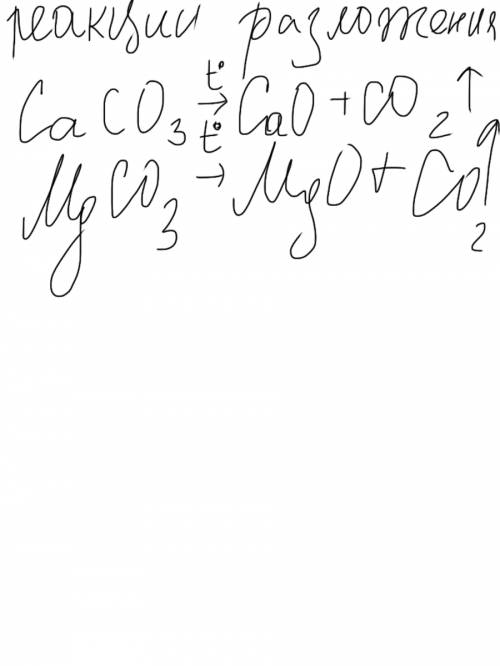 реакции разложения
CaCO₃ t°→ CaO + CO₂↑
MgCO₃ t°→ MgO + CO₂↑